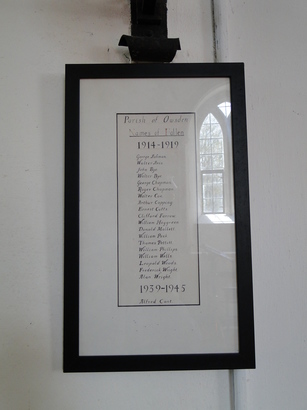 Parish of Ousden
Names of Fallen
1914-1919
George
Walter
John Rye
Walter Rye
George Chapman
Roger Chapman
Walter Cox
Arthur Copping
Ernest Cutts
Clifford Farrow
William
Donald
William Pask
Thomas Pettitt
William Phillips
William Watts
Leopold Woods
Frederick Wright
Allan Wright
1939-1945
Alfred Cook